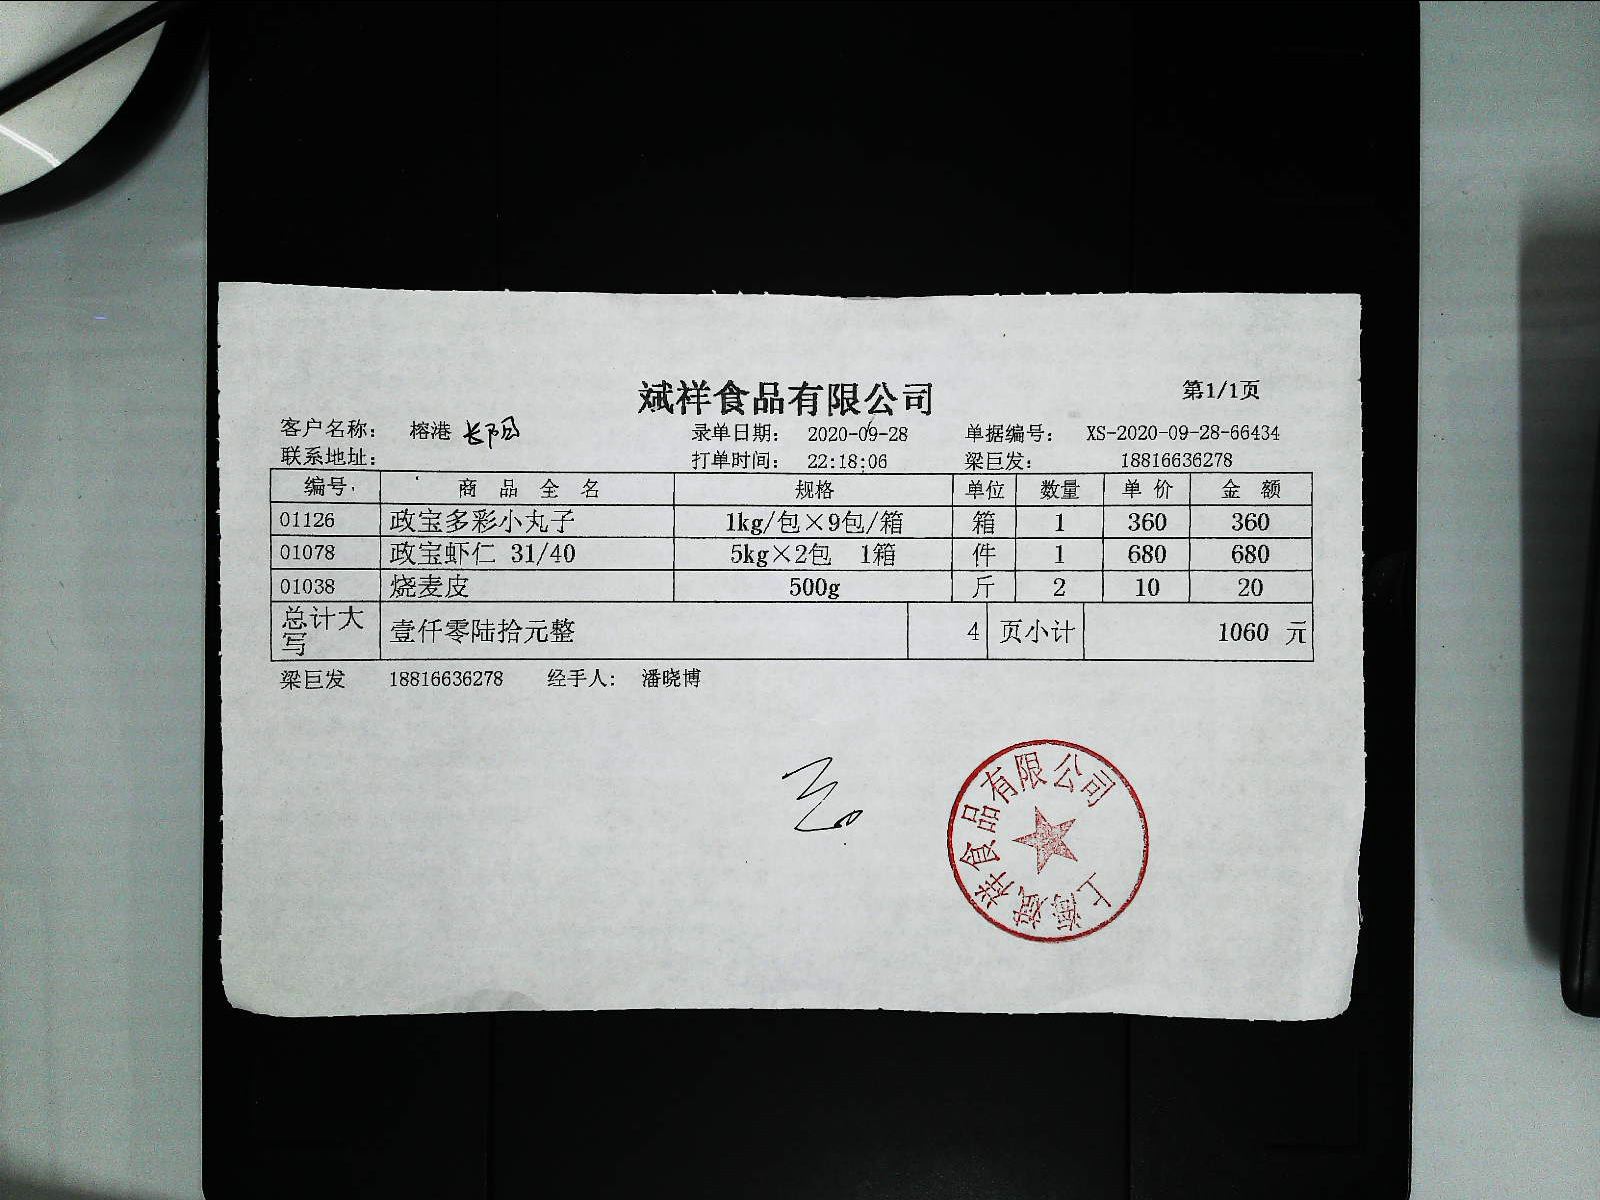 斌祥食品有限公司 第1/1页
客户名称: 榕港 长阳 录单日期: 2020-09-28 单据编号: XS-2020-09-28-66434
联系地址: 打单时间: 22:18:06 梁巨发: 18816636278
编号 商品全名 规格 单位 数量 单价 金额
01126 政宝多彩小丸子 1kg/包×9包/箱 箱 1 360 360
01078 政宝虾仁 31/40 5kg×2包 1箱 件 1 680 680
01038 烧麦皮 500g 斤 2 10 20
总计大写 壹仟零陆拾元整 4 页小计 1060 元
梁巨发 18816636278 经手人: 潘晓博
上海斌祥食品有限公司